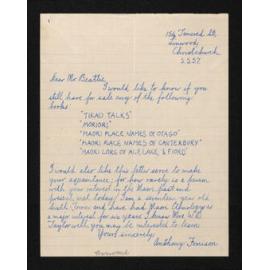 Linwood
Christchurch
5.5.57.
Dear Mr Beattie,
I would like to know if you
still have for sale any of the following
books
"TIKAO TALKS"
"MORIORI"
"MAORI PLACE NAMES OF OTAGO"
"MAORI PLACE NAMES OF CANTERBURY"
"MAORI LORE OF ALP, LAKE, & FIORD"
I would also like this letter serve to make
your aquaintance, for how rarely is a person
with your interest in the Maori, past and
present, met today. I am a seventeen year old
youth and have had Maori Ethnology as a
major interest for six years. I know Mrs W.A.
Taylor well, you may be interested to learn.
Yours sincerely,
Anthony